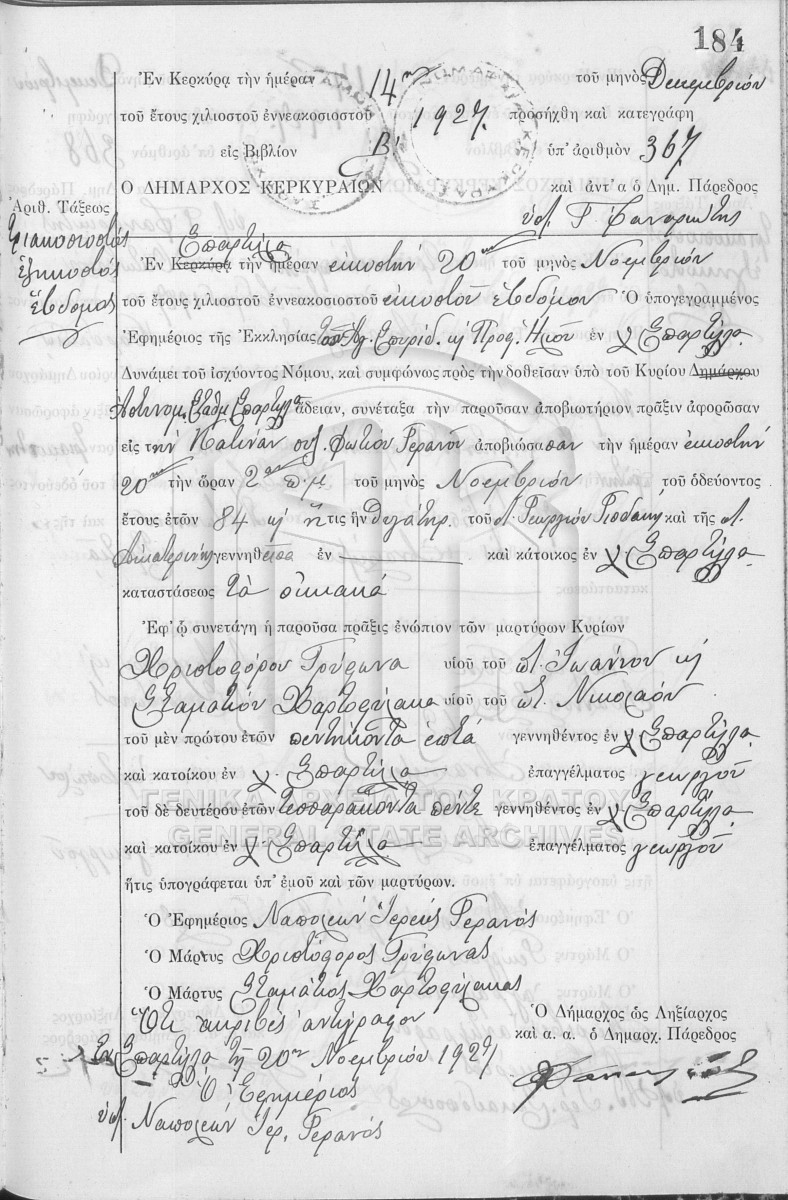 184
Ἐν Κερκύρᾳ τὴν ἡμέραν 14ην τοῦ μηνὸς Δεκεμβρίου
τοῦ ἔτους χιλιοστοῦ ἐννεακοσιοστοῦ 1927 προσήχθη καὶ κατεγράφη
εἰς Βιβλίον Β' ὑπ' ἀριθμὸν 367
Ο ΔΗΜΑΡΧΟΣ ΚΕΡΚΥΡΑΙΩΝ καὶ ἀντ' α ὁ Δημ. Πάρεδρος
Ἀριθ. Τάξεως
τριακοσιοστός
ἑξηκοστός
ἕβδομος
Σπαρτύλα
Ἐν Κερκύρᾳ τὴν ἡμέραν εἰκοστήν 20ην τοῦ μηνὸς Νοεμβρίου
τοῦ ἔτους χιλιοστοῦ ἐννεακοσιοστοῦ εἰκοστοῦ ἑβδόμου Ὁ ὑπογεγραμμένος
Ἐφημέριος τῆς Ἐκκλησίας τοῦ Ἁγ. Σπυρίδ. κ Προφ. Ἠλιοῦ ἐν χ Σπαρτύλα
Δυνάμει τοῦ ἰσχύοντος Νόμου, καὶ συμφώνως πρὸς τὴν δοθεῖσαν ὑπὸ τοῦ Κυρίου Δημάρχου
Ἀστυνομ. Σταθμ. Σπαρτύλα ἄδειαν, συνέταξα τὴν παροῦσαν ἀποβιωτήριον πρᾶξιν ἀφορῶσαν
εἰς τὴν Κατίναν συζ. Φωτίου Γερανοῦ ἀποβιώσασαν τὴν ἡμέραν εἰκοστήν
20ην τὴν ὥραν 2αν π.μ τοῦ μηνὸς Νοεμβρίου τοῦ ὁδεύοντος
ἔτους ἐτῶν 84 κ ἥτις ἦν θυγάτηρ τοῦ Γεωργίου καὶ τῆς
Αἰκατερίνης γεννηθεῖσα ἐν καὶ κάτοικος ἐν χ Σπαρτύλα
καταστάσεως τὰ οἰκιακά
Ἐφ' ᾧ συνετάγη ἡ παροῦσα πρᾶξις ἐνώπιον τῶν μαρτύρων Κυρίων
Χριστοφόρου Τρύφωνα υἱοῦ τοῦ Ἰωάννου κ
Σταματίου Χαρτοφύλακα υἱοῦ τοῦ Νικολάου
τοῦ μὲν πρώτου ἐτῶν πεντήκοντα ἑπτά γεννηθέντος ἐν χ Σπαρτύλα
καὶ κατοίκου ἐν χ. Σπαρτύλα ἐπαγγέλματος γεωργοῦ
τοῦ δὲ δευτέρου ἐτῶν τεσσαράκοντα πέντε γεννηθέντος ἐν χ. Σπαρτύλα
καὶ κατοίκου ἐν χ. Σπαρτύλα ἐπαγγέλματος γεωργοῦ
ἥτις ὑπογράφεται ὑπ' ἐμοῦ καὶ τῶν μαρτύρον.
Ὁ Ἐφημέριος Ναπολέων Ἱερεύς Γερανός
Ὁ Μάρτυς Χριστόφορος Τρύφωνας
Ὁ Μάρτυς Σταμάτιος Χαρτοφύλακας
Ὅτι ἀκριβές ἀντίγραφον
Ἐν Σπαρτύλα τῇ 20ην Νοεμβρίου 1927
Ὁ Ἐφημέριος
ὑπ. Ναπολέων Ἱερ. Γερανός
Ὁ Δήμαρχος ὡς Ληξίαρχος
καὶ α. α. ὁ Δημαρχ. Πάρεδρος
ΓΕΝΙΚΑ ΑΡΧΕΙΑ ΤΟΥ ΚΡΑΤΟΥΣ
GENERAL STATE ARCHIVES